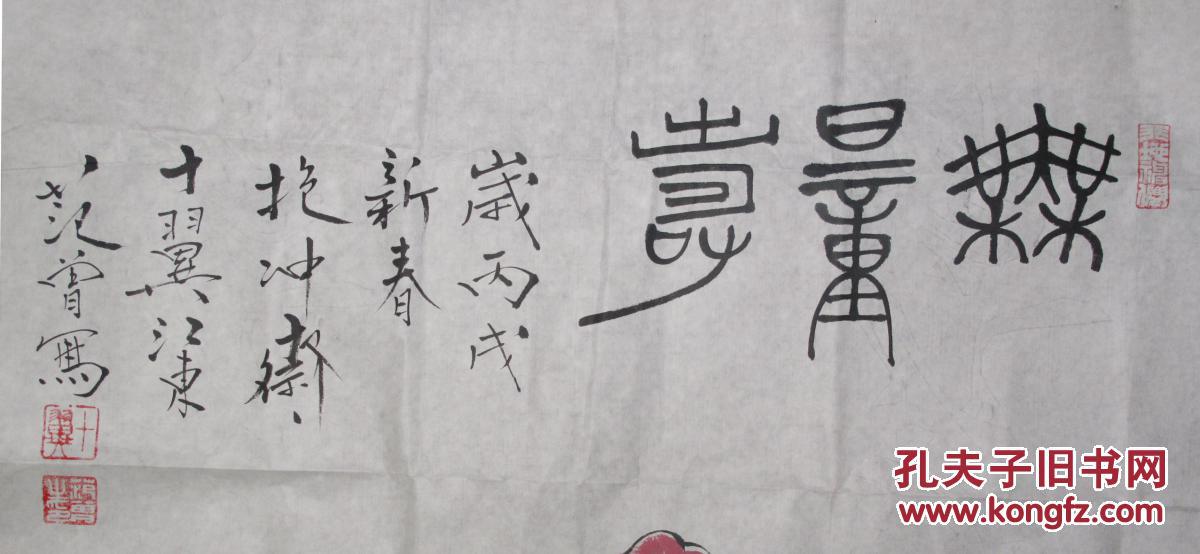 無量壽
歲丙戌
新春
抱冲齋
十翼江東
范曾寫
十翼
孔夫子旧书网
www.kongfz.com